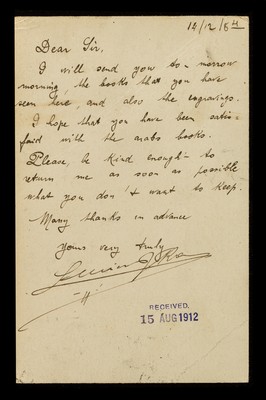 Dear Sir,
I will send you to-morrow
morning, the books that you have
seen here, and also the engravings.
I hope that you have been satis=
faid with the arabs books.
Please, be kind enough to
return me as soon as possible
what you don't want to keep.
Many thanks in advance
Yours very truly
RECEIVED.
15 AUG 1912